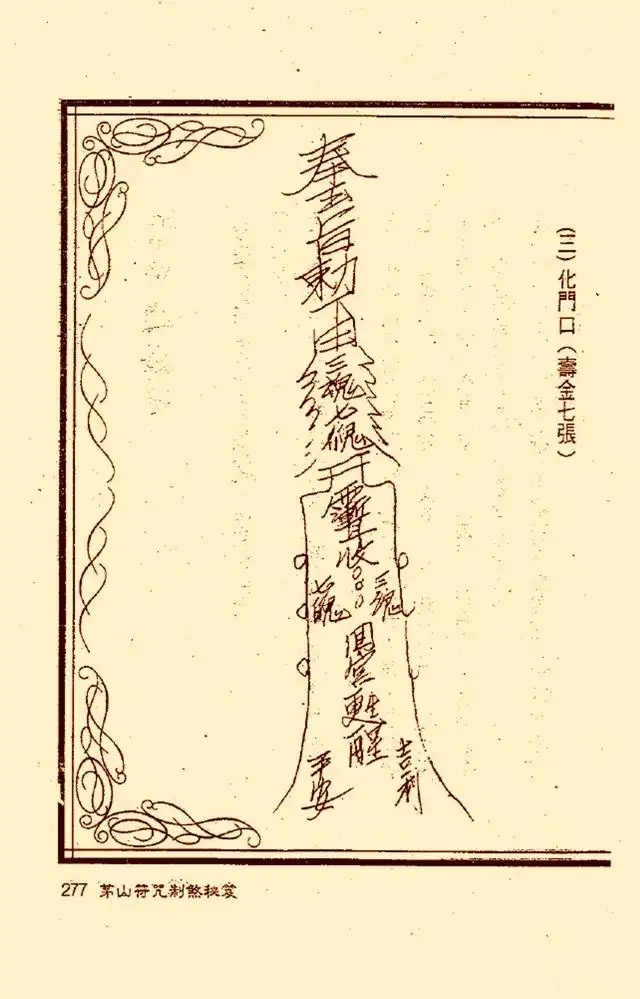 (三)化門口(壽金七張)
奉
旨
勅
下
三魂
七魄
收
三魂
七魄
甦醒
吉利
平安
277 茅山符咒制煞秘笈